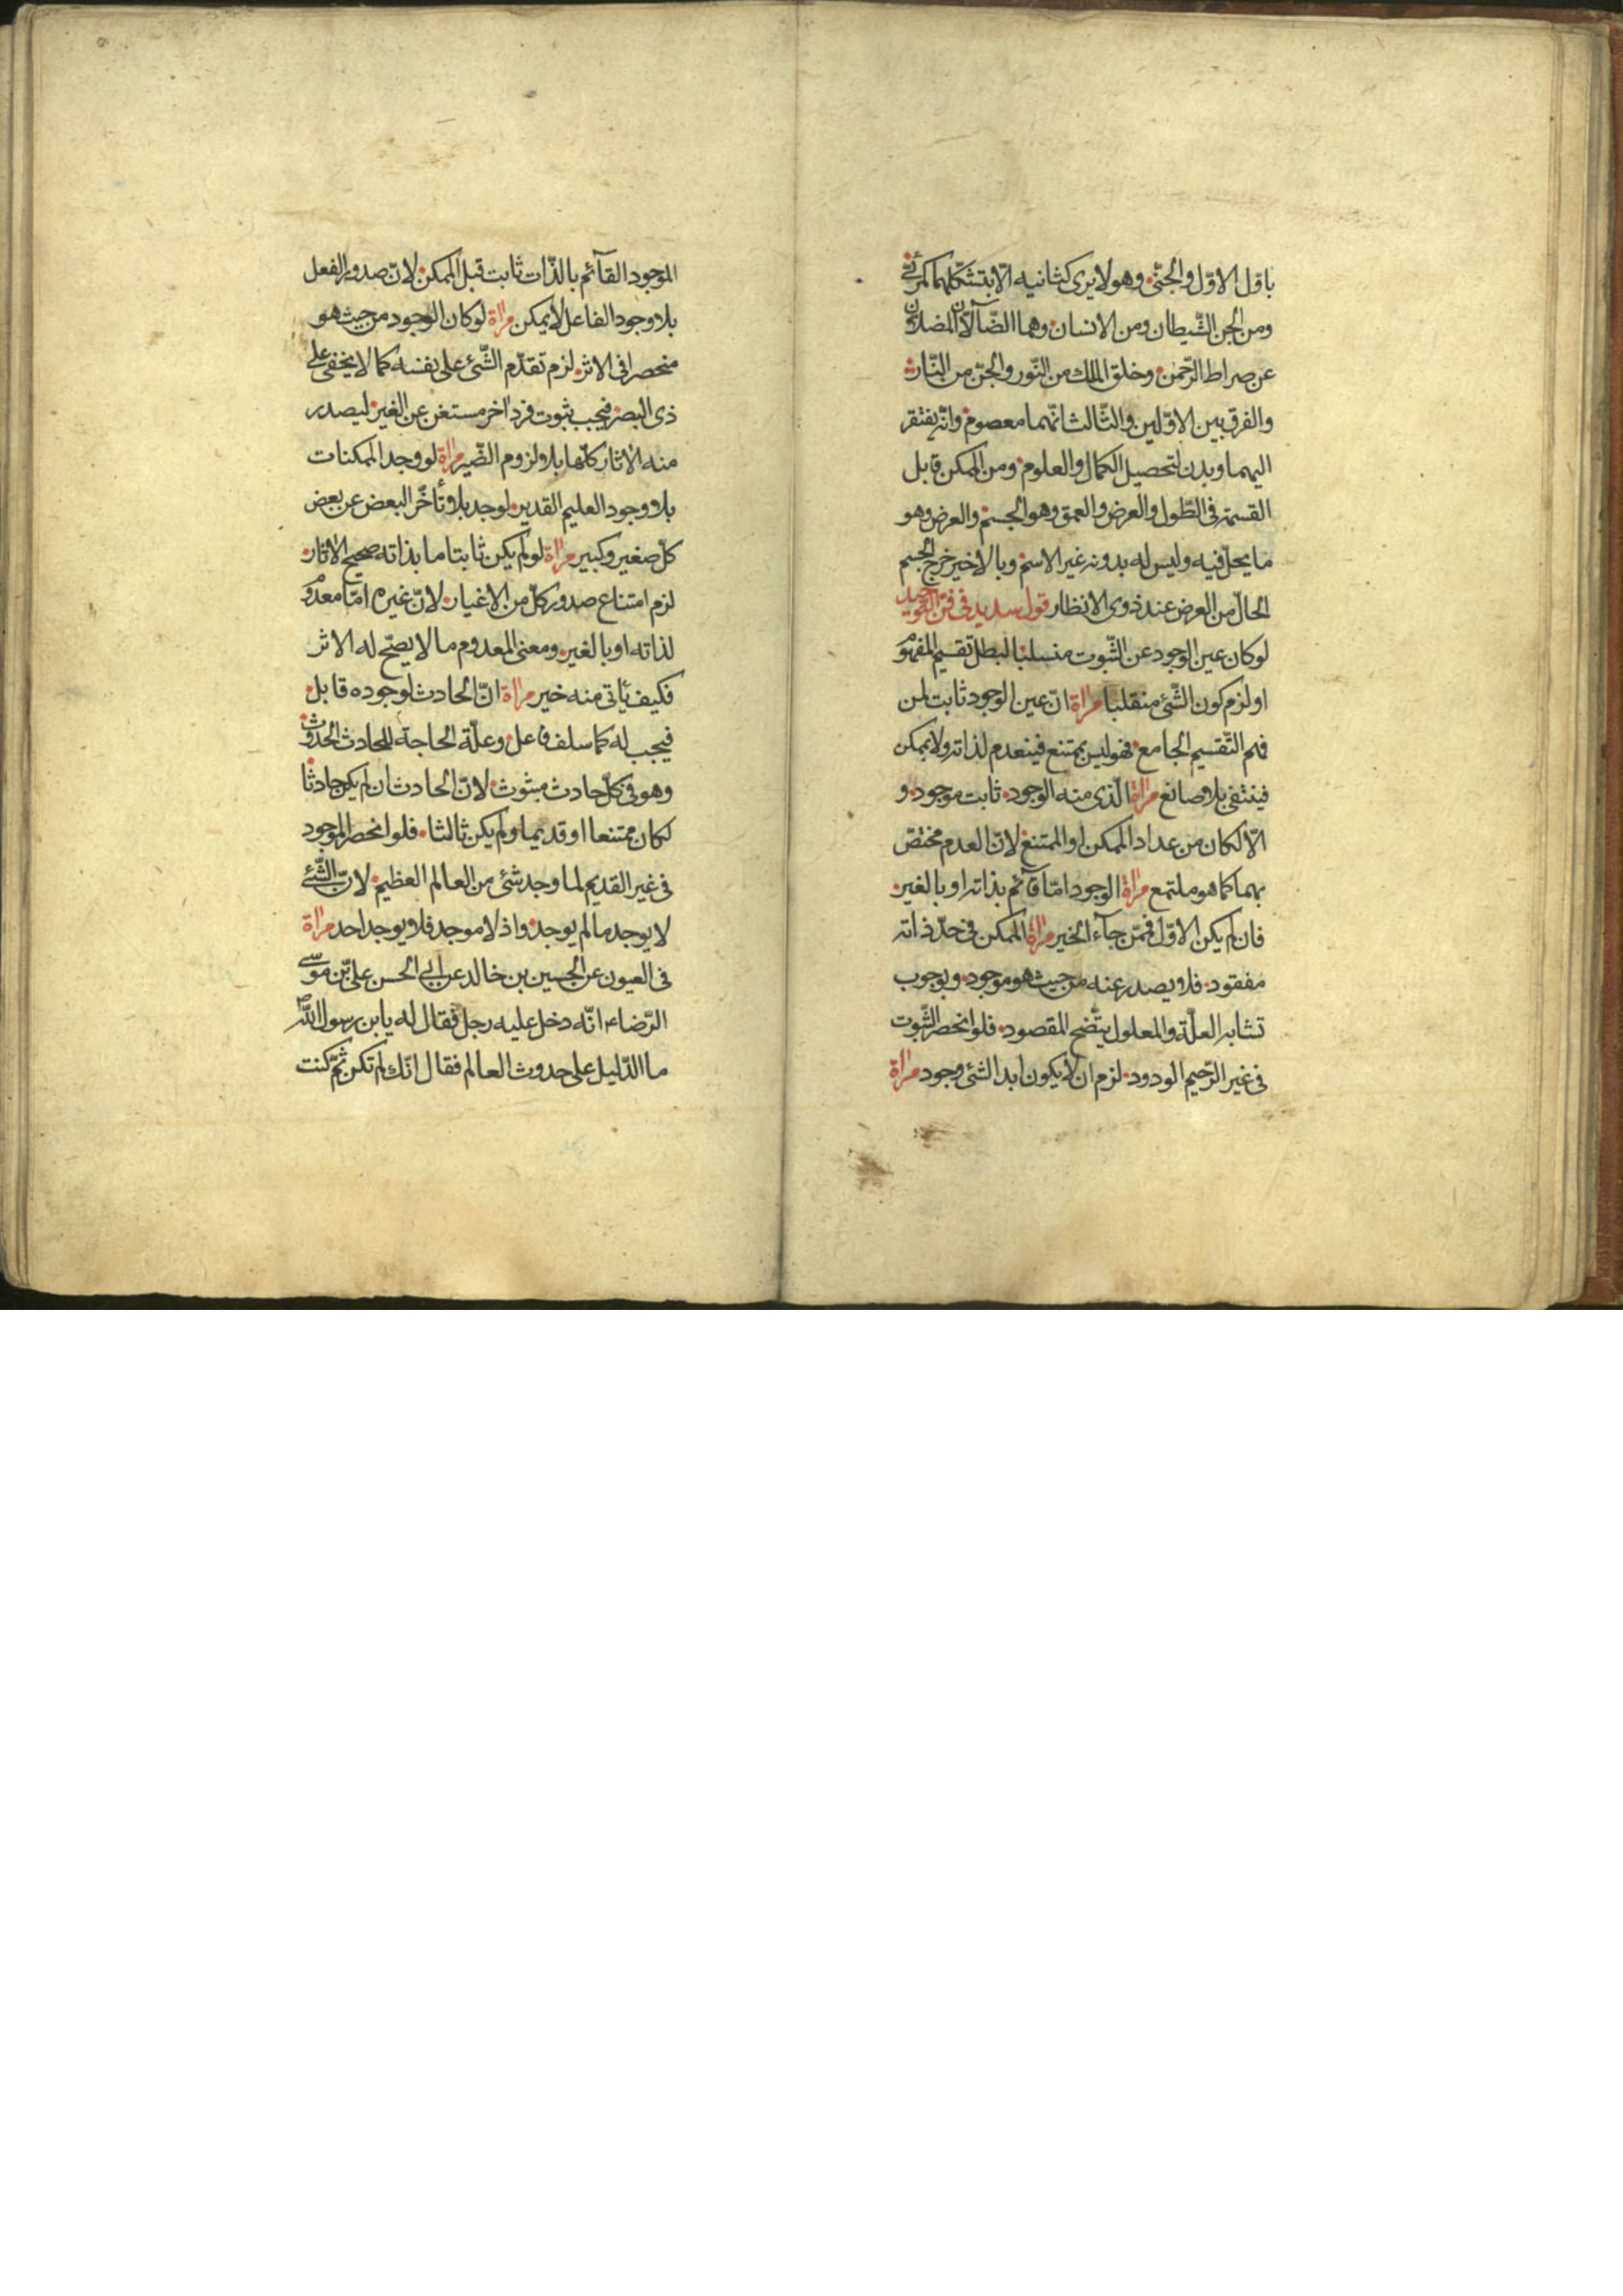 باوّل الاوّل والجنّي وهو لا يرى كثانيه الّا بتشكّلهما كمرئي
ومن الجن الشّيطان ومن الانسان وهما الضّآلّان المضلّان
عن صراط الرّحمن وخلق الملك من النّور والجنّ من النّار
والفرق بين الاوّلين والثّالث انّهما معصوم وانّه يفتقر
اليهما وبدن لتحصيل الكمال والعلوم ومن الممكن قابل
القسمة في الطّول والعرض والعمق وهو الجسم والعرض وهو
ما يحلّ فيه وليس له بدونه غير الاسم وبالاخير خرج الجسم
الحالّ من العرض عند ذوي الانظار قول سديد في فنّ التّوحيد
لو كان عين الوجود عن الثّبوت منسلبا لبطل تقسيم المفهوم
او لزم كون الشّئ منقلبا مراة انّ عين الوجود ثابت لمن
فهم التّقسيم الجامع فهو ليس بممتنع فينعدم لذاته ولا بممكن
فينتفي بلا صانع مراة الّذي منه الوجود ثابت موجود و
الّا لكان من عداد الممكن او الممتنع لانّ العدم مختصّ
بهما كما هو ملتمع مراة الوجود امّا قآئم بذاته او بالغير
فان لم يكن الاوّل فممّن جآء الخير مراة الممكن في حدّ ذاته
مفقود فلا يصدر عنه من حيث هو موجود وبوجوب
تشابه العلّة والمعلول يتّضح المقصود فلو انحصر الثّبوت
في غير الرّحيم الودود لزم ان لا يكون ابدا لشئ وجود مراة
الموجود القآئم بالذّات ثابت قبل الممكن لانّ صدور الفعل
بلا وجود الفاعل لا يمكن مراة لو كان الوجود من حيث هو
منحصرا في الاثر لزم تقدّم الشّئ على نفسه كما لا يخفى على
ذي البصر فيجب ثبوت فرد اخر مستغن عن الغير ليصدر
منه الاثار كلّها بلا لزوم الضّير مراة لو وجد الممكنات
بلا وجود العليم القدير لوجد بلا تأخّر البعض عن بعض
كلّ صغير وكبير مراة لو لم يكن ثابتا ما بذاته صحيح الاثار
لزم امتناع صدور كلّ من الاغيار لانّ غيره امّا معدوم
لذاته او بالغير ومعنى المعدوم ما لا يصحّ له الاثر
فكيف يأتي منه خير مراة انّ الحادث لوجوده قابل
فيجب له كما سلف فاعل وعلّة الحاجة للحادث الحدوث
وهو في كلّ حادث مبثوث لانّ الحادث ان لم يكن حادثا
لكان ممتنعا او قديما ولم يكن ثالثا فلو انحصر الموجود
في غير القديم لما وجد شئ من العالم العظيم لانّ الشّئ
لا يوجد ما لم يوجد واذ لا موجد فلا يوجد احد مراة
في العيون عن الحسين بن خالد عن ابي الحسن عليّ بن موسى
الرّضاء انّه دخل عليه رجل فقال له يا بن رسول اللّه
ما الدّليل على حدوث العالم فقال انّك لم تكن ثمّ كنت